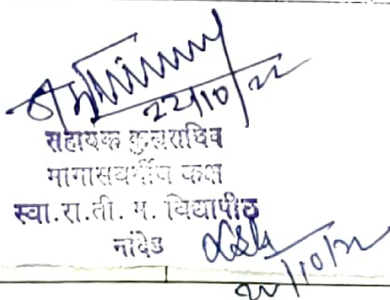 22/10/22
सहायक कुलसचिव
मागासवर्गीय कक्ष
स्वा.रा.ती. म. विद्यापीठ
नांदेड
22/10/22